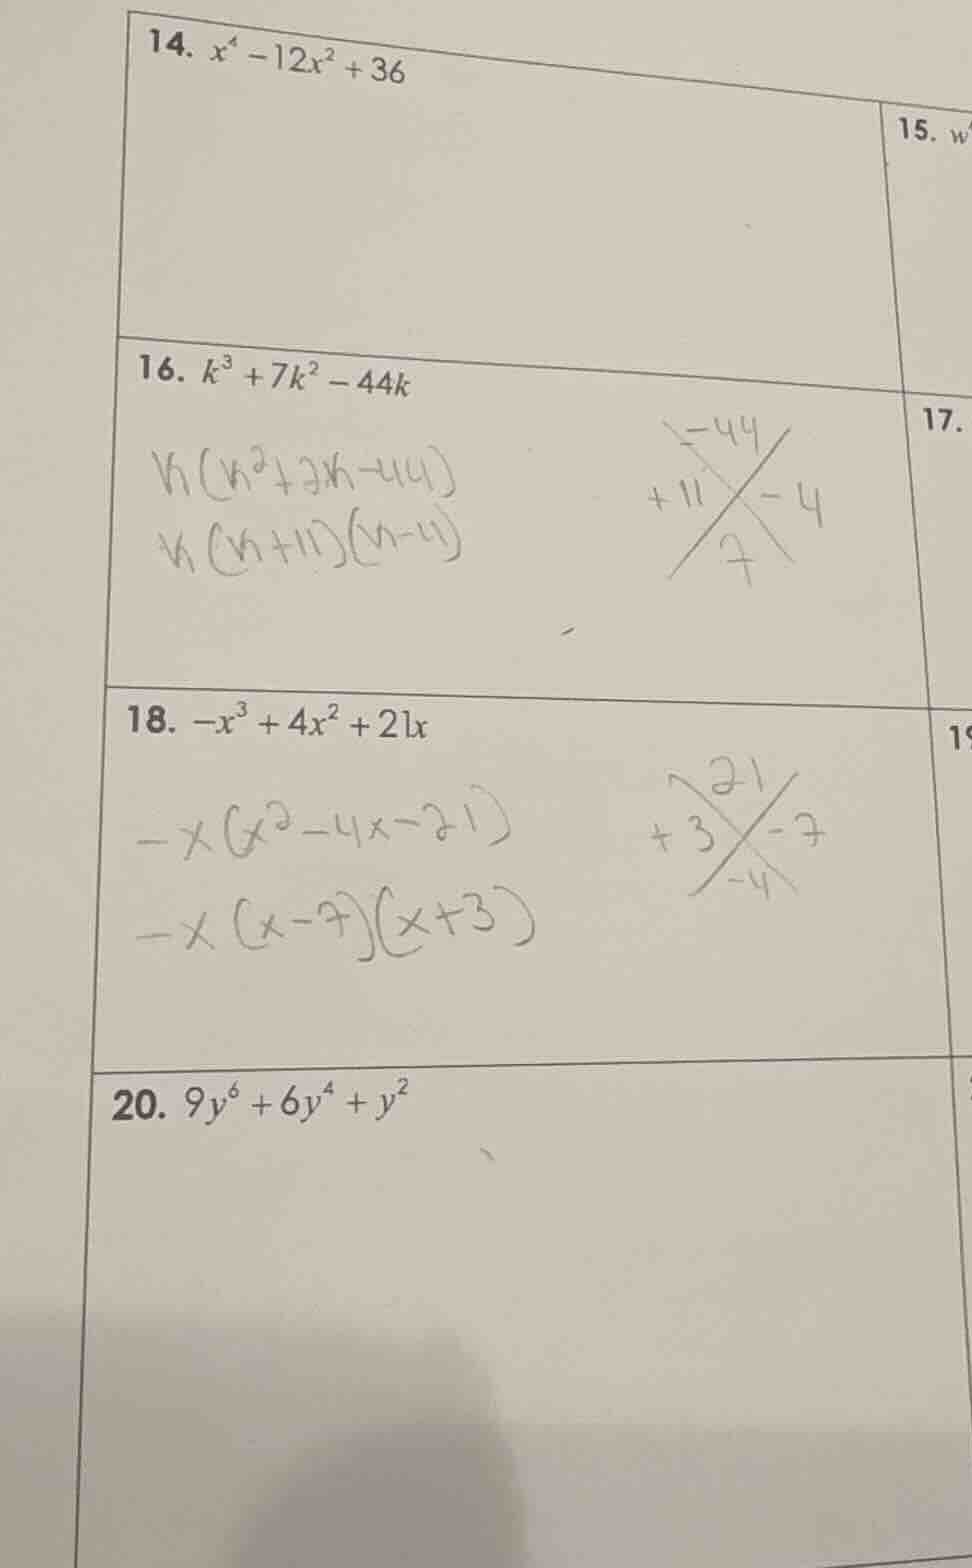 14. x⁴ – 12x² + 36
15. w
16. k³ + 7k² – 44k
k(k²+7k-44)
k(k+11)(k-4)
-44
+11 -4
7
17.
18. –x³ + 4x² + 21x
-x(x²-4x-21)
-x(x-7)(x+3)
21
+3 -7
-4
19
20. 9y⁶ + 6y⁴ + y²